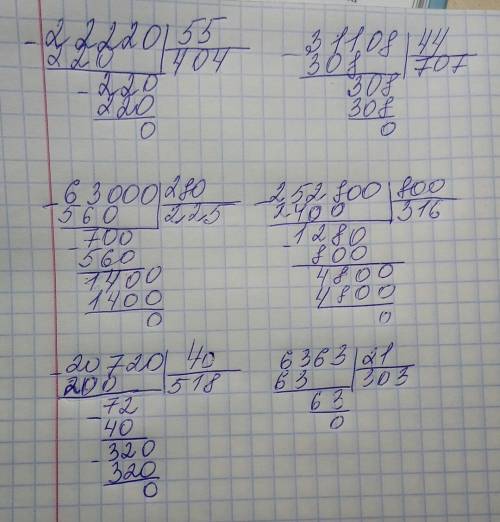 -22220|55
220|404
-220
220
0
-31108|44
308|707
308
308
0
-63000|280
560|225
-700
560
1400
1400
0
-252800|800
2400|316
-1280
800
4800
4800
0
-20720|40
200|518
-72
40
-320
320
0
6363|21
63|303
63
0